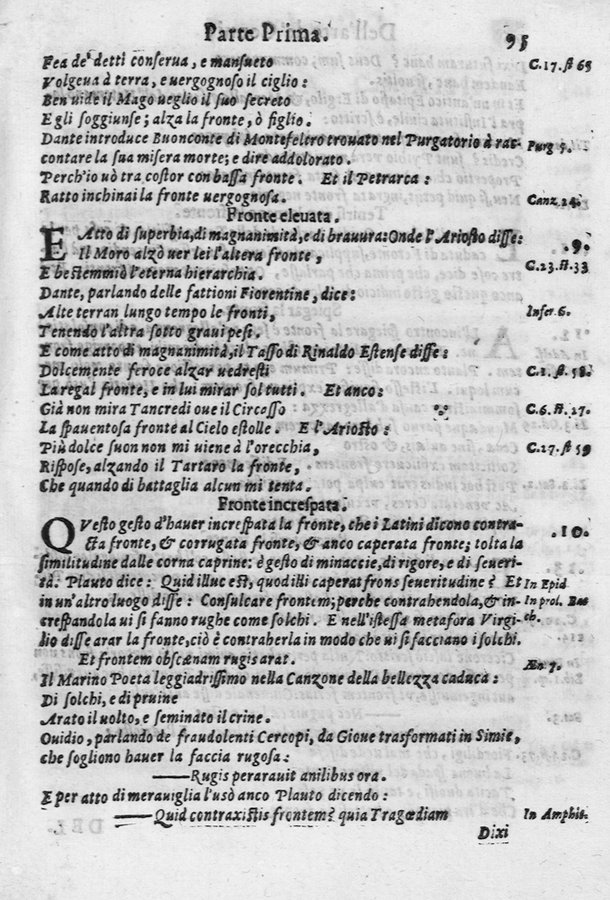 Parte Prima. 95
Fea de' detti conserua, e mansueto C.17. st 65
Volgeua à terra, e uergognoso il ciglio:
Ben uide il Mago ueglio il suo secreto
E gli soggiunse; alza la fronte, ò figlio.
Dante introduce Buonconte di Montefeltro trouato nel Purgatorio à rac- Purg 5.
contare la sua misera morte; e dire addolorato.
Perch'io uò tra costor con bassa fronte. Et il Petrarca:
Ratto inchinai la fronte uergognosa. Canz 24.
Fronte eleuata.
E Atto di superbia, di magnanimità, e di brauura: Onde l'Ariosto disse: .9.
Il Moro alzò uer lei l'altera fronte,
E bestemmiò l'eterna hierarchia. C.23. st.33
Dante, parlando delle fattioni Fiorentine, dice:
Alte terran lungo tempo le fronti, Infer. 6.
Tenendo l'altra sotto graui pesi.
E come atto di magnanimità, il Tasso di Rinaldo Estense disse:
Dolcemente feroce alzar uedresti C.1. st. 58.
La regal fronte, e in lui mirar sol tutti. Et anco:
Già non mira Tancredi oue il Circasso C.6. st. 27.
La spauentosa fronte al Cielo estolle. E l'Ariosto:
Più dolce suon non mi uiene à l'orecchia, C.17. st 59
Rispose, alzando il Tartaro la fronte,
Che quando di battaglia alcun mi tenta.
Fronte increspata.
QVesto gesto d'hauer increspata la fronte, che i Latini dicono contra- .10.
cta fronte, & corrugata fronte, & anco caperata fronte; tolta la
similitudine dalle corna caprine: è gesto di minaccie, di rigore, e di seueri-
tà. Plauto dice: Quid illuc est, quod illi caperat frons seueritudine? Et In Epid
in un'altro luogo disse: Consulcare frontem; perche contrahendola, & in- In prol. Bac
crespandola ui si fanno rughe come solchi. E nell'istessa metafora Virgi- ch.
lio disse arar la fronte, ciò è contraherla in modo che ui si facciano i solchi.
Et frontem obscænam rugis arat. Æn 7.
Il Marino Poeta leggiadrissimo nella Canzone della bellezza caduca:
Di solchi, e di pruine
Arato il uolto, e seminato il crine.
Ouidio, parlando de fraudolenti Cercopi, da Gioue trasformati in Simie,
che sogliono hauer la faccia rugosa:
—— Rugis perarauit anilibus ora.
E per atto di merauiglia l'usò anco Plauto dicendo:
—— Quid contraxistis frontem? quia Tragœdiam In Amphit.
Dixi